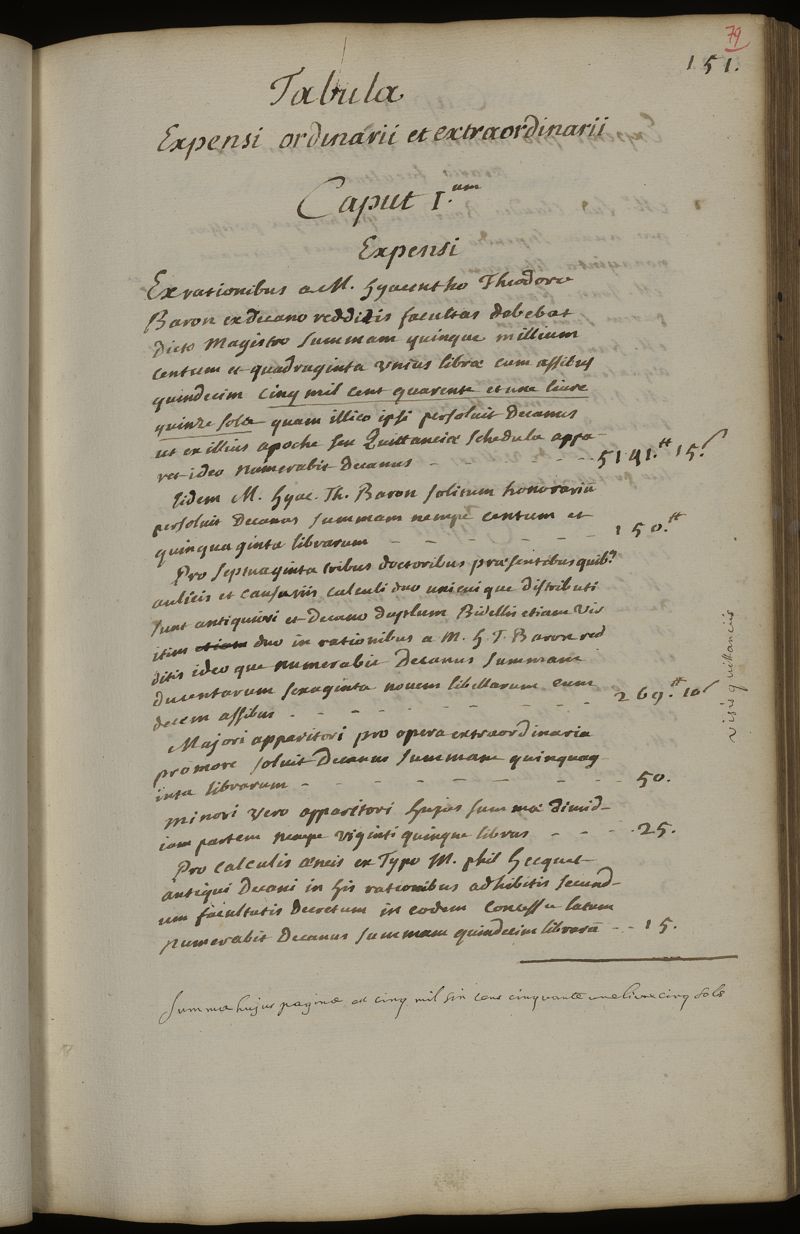 79
151.
Tabula
Expensi ordinarii et extraordinarii
Caput I.um
Expensi
Ex rationibus a M. Hyacintho Theodoro
Baron ex Decano redditis facultas debebat
dicto Magistro summam quinque millium
centum et quadraginta unius libræ cum assibus
quindecim cinq mil cent quarente et une livre
quinze sols quam illico ipsi persoluit Decanus
ut ex illius apocha seu Quittanciæ schedula appa-
ret ideo numerabit Decanus - - - - - 5141.tt 15.s
Eidem M. Hyac. Th. Baron solitum honorariū
persoluit Decanus summam nempe centum et
quinquaginta librarum - - - - - - 150.tt
Pro septuaginta tribus doctoribus præsentibus quib.s
aulicis et calculi duo unicuique distributi
sunt antiquiori et Decano duplum Bidellis etiam vir
itim etiam duo in rationibus a M. H. T. Baron red
ditis ideoque numerabit Decanus summam
ducentarum sexaginta novem libellarum cum
decem assibus - - - - - - - 269.tt 10s
Majori apparitori pro opera extraordinaria
pro more soluit Decanus summam quinquag-
inta librarum - - - - - - - 50.
minori vero apparitori hujus summæ dimid-
iam partem nempe viginti quinque libras - - - 25.
Pro calculis æneis ex Typo M. phil Hecquet
antiqui Decani in his rationibus adhibitis secund-
um facultatis Decretum in eodem Concessu latum
numerabit Decanus summam quindecim librarū - - 15.
visis quittanciis
Summa hujus paginæ est cinq mil six cens cinquante une livre cinq sols